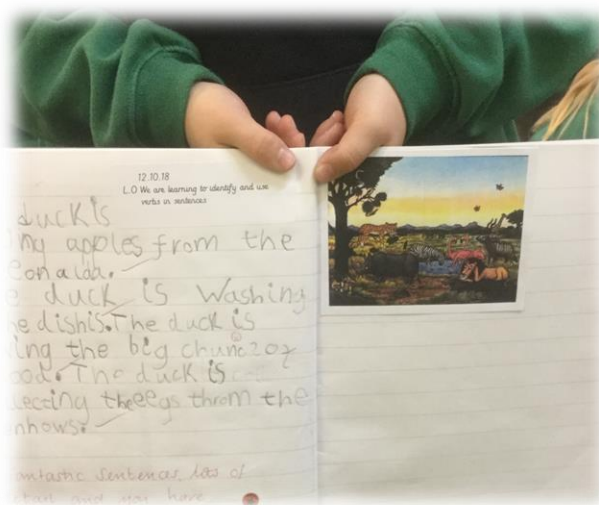 12.10.18
L.O We are learning to identify and use
verbs in sentences
duck is
ing apples from the
on a lda.
duck is Washing
he dishis. The duck is
ing the big chunc
ood. The duck is
lecting theeegs throm the
nhows.
antastic sentences, lots of
and you have